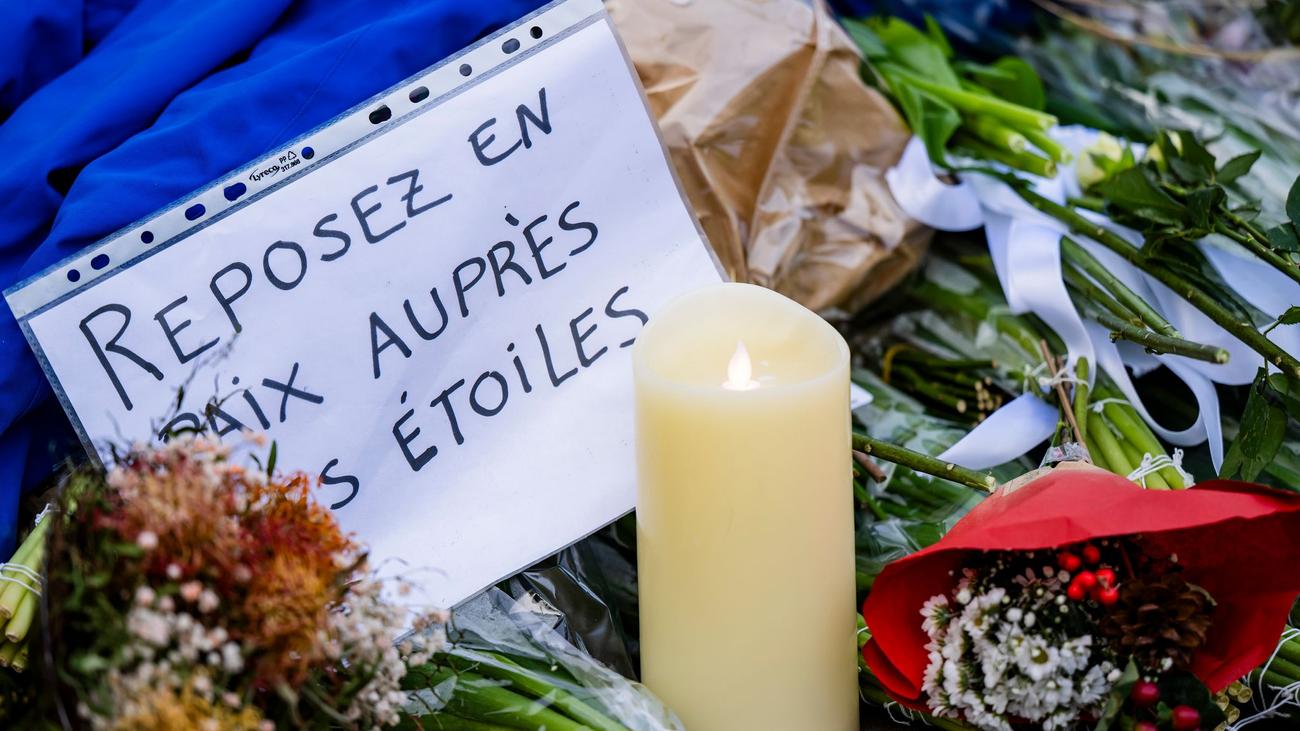 Lyreco PP
317.868
REPOSEZ EN
PAIX AUPRÈS
S ÉTOILES